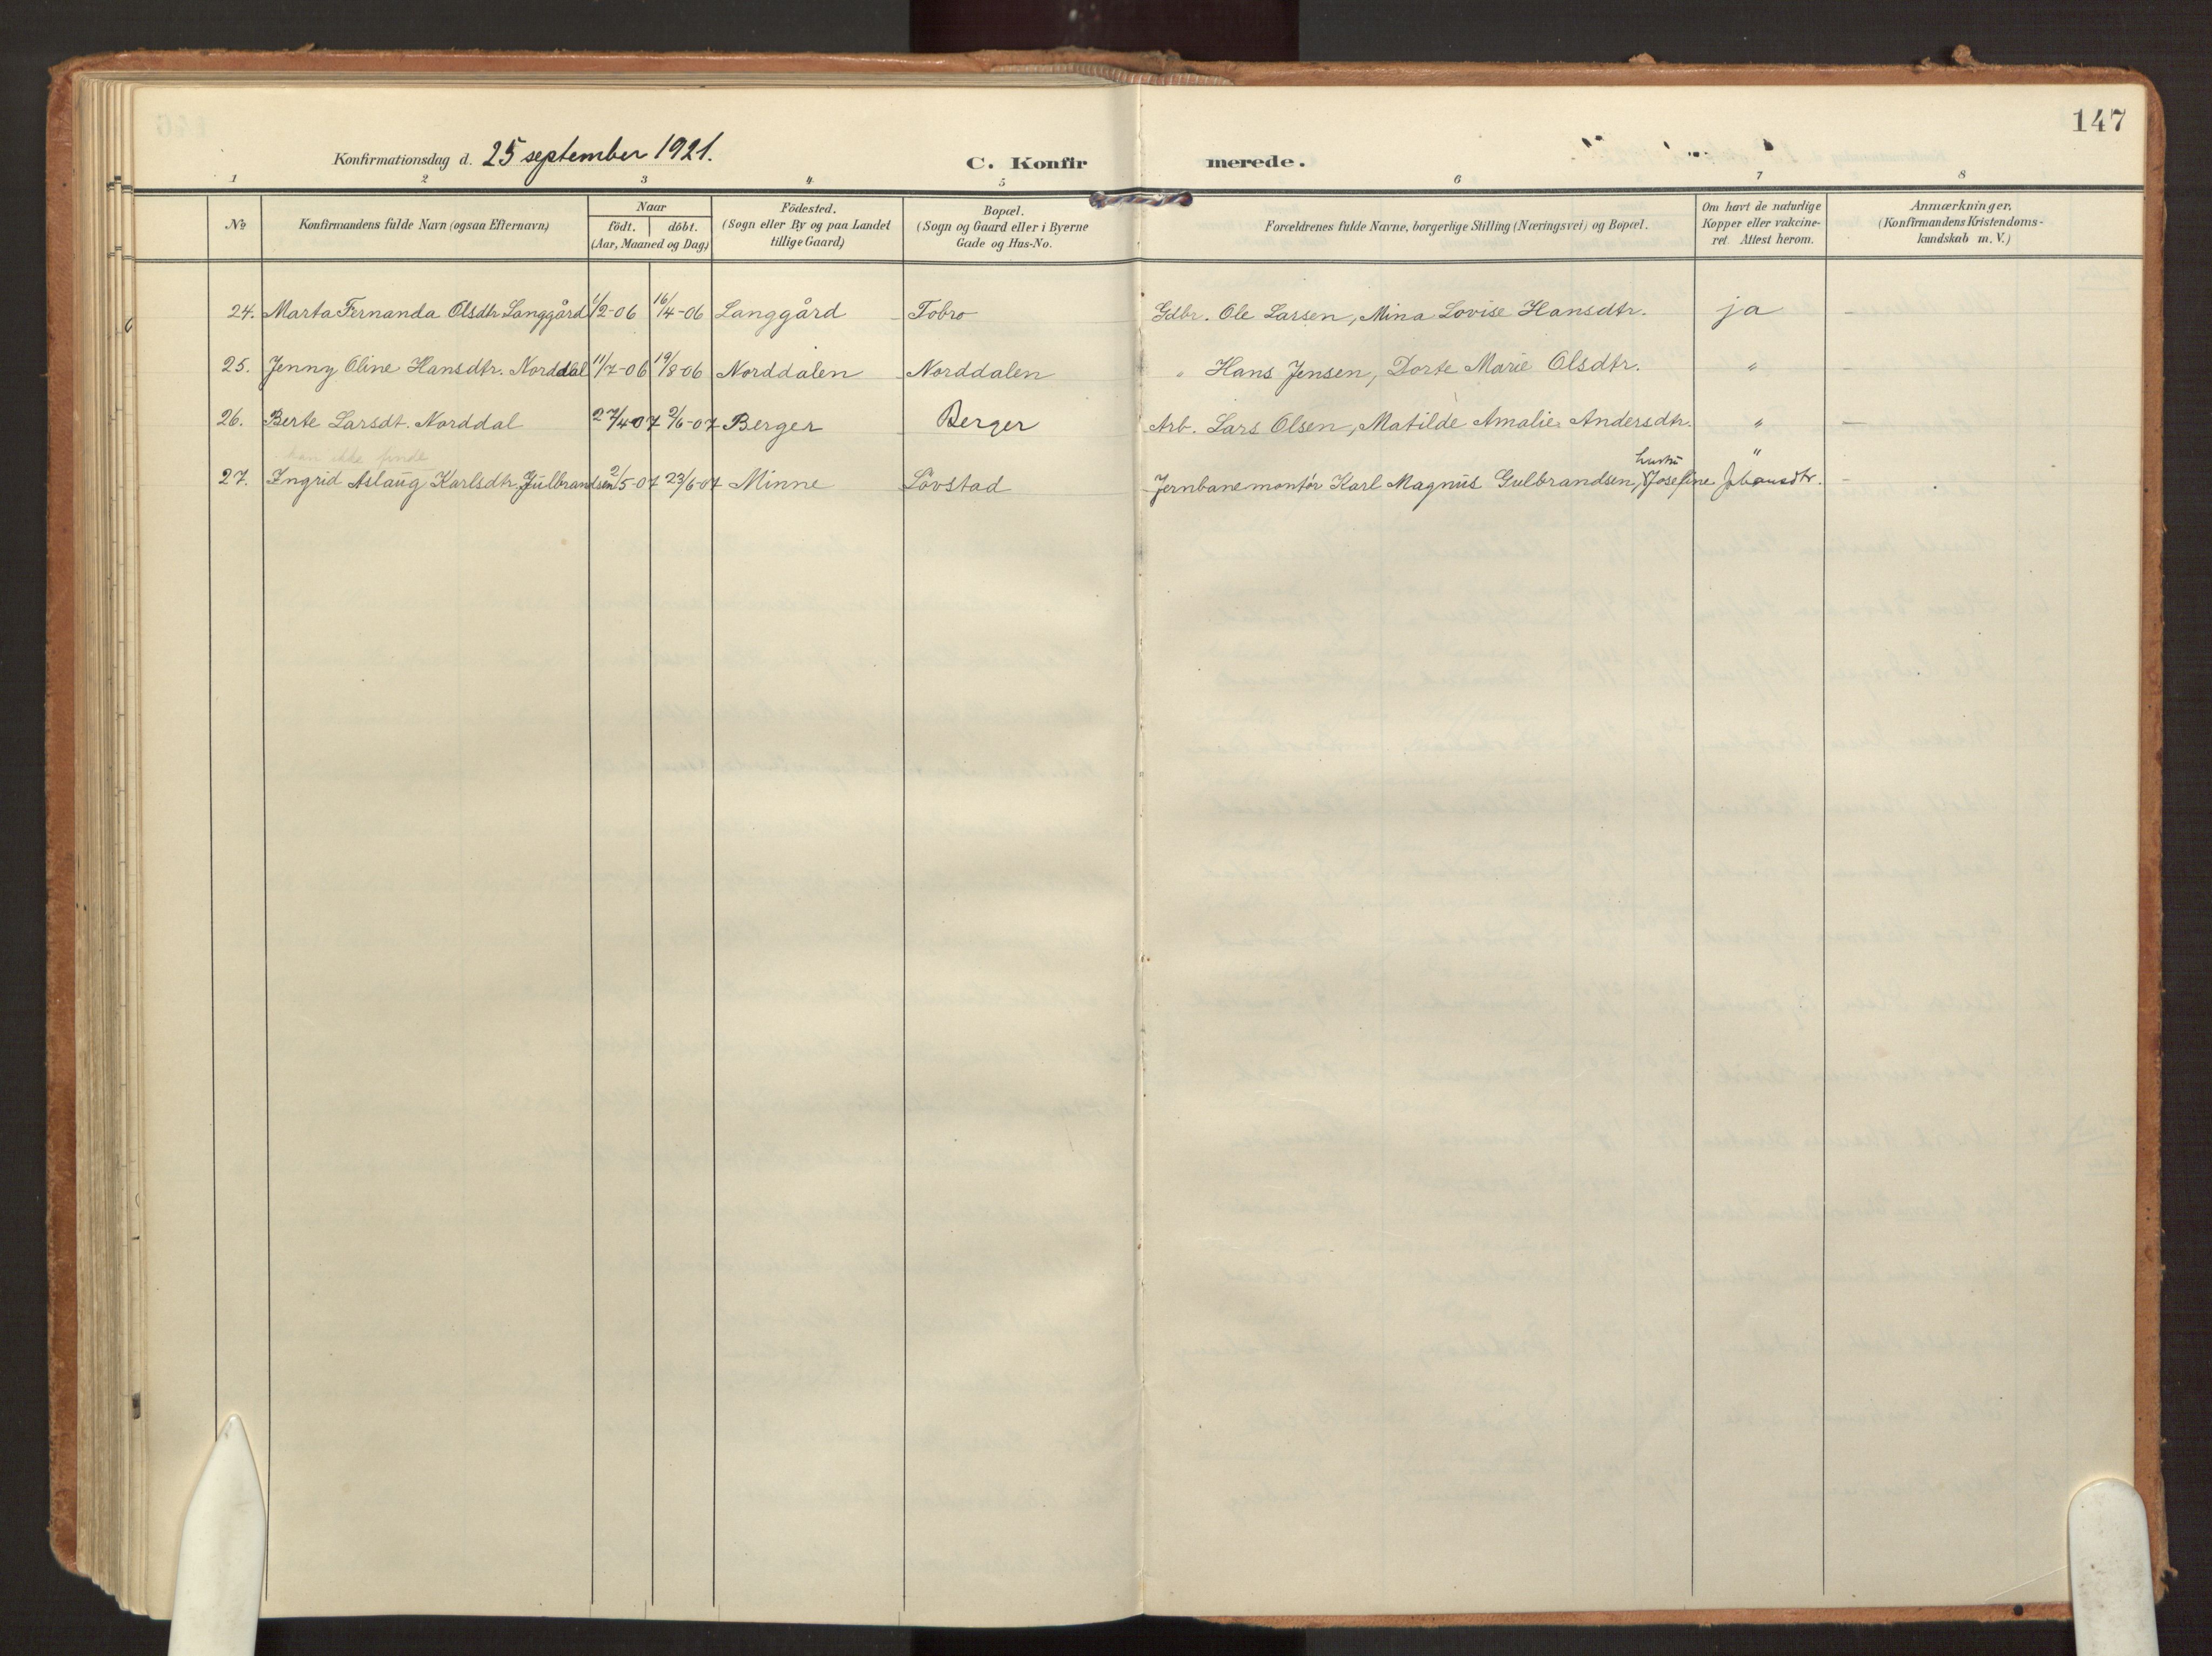 147
Konfirmationsdag d. 25 september 1921. C. Konfir merede.
1 2 3 4 5 6 7 8
No Konfirmandens fulde Navn (ogsaa Efternavn) Naar födt. döbt. (Aar, Maaned og Dag) Födested. (Sogn eller By og paa Landet tillige Gaard) Bopæl. (Sogn og Gaard eller i Byerne Gade og Hus-No. Forældrenes fulde Navne, borgerlige Stilling (Næringsvei) og Bopæl. Om havt de naturlige Kopper eller vakcineret. Attest herom. Anmærkninger. (Konfirmandens Kristendomskundskab m. V.)
24. Marta Fernanda Olsdtr. Langgård 1/2-06 16/4-06 Langgård - Tobro Gdbr. Ole Larsen, Mina Lovise Hansdtr. ja -
25. Jenny Oline Hansdtr. Norddal 11/7-06 19/8-06 Norddalen Norddalen " Hans Jensen, Dorte Marie Olsdtr. " -
26. Berte Larsdt. Norddal 27/4-07 2/6-07 Berger Berger Arb. Lars Olsen, Matilde Amalie Andersdtr. " -
kan ikke finde
27. Ingrid Aslaug Karlsdtr. Gulbrandsen 2/5-07 23/6-07 Minne Lövstad Jernbanemontör Karl Magnus Gulbrandsen, hustru Josefine " -